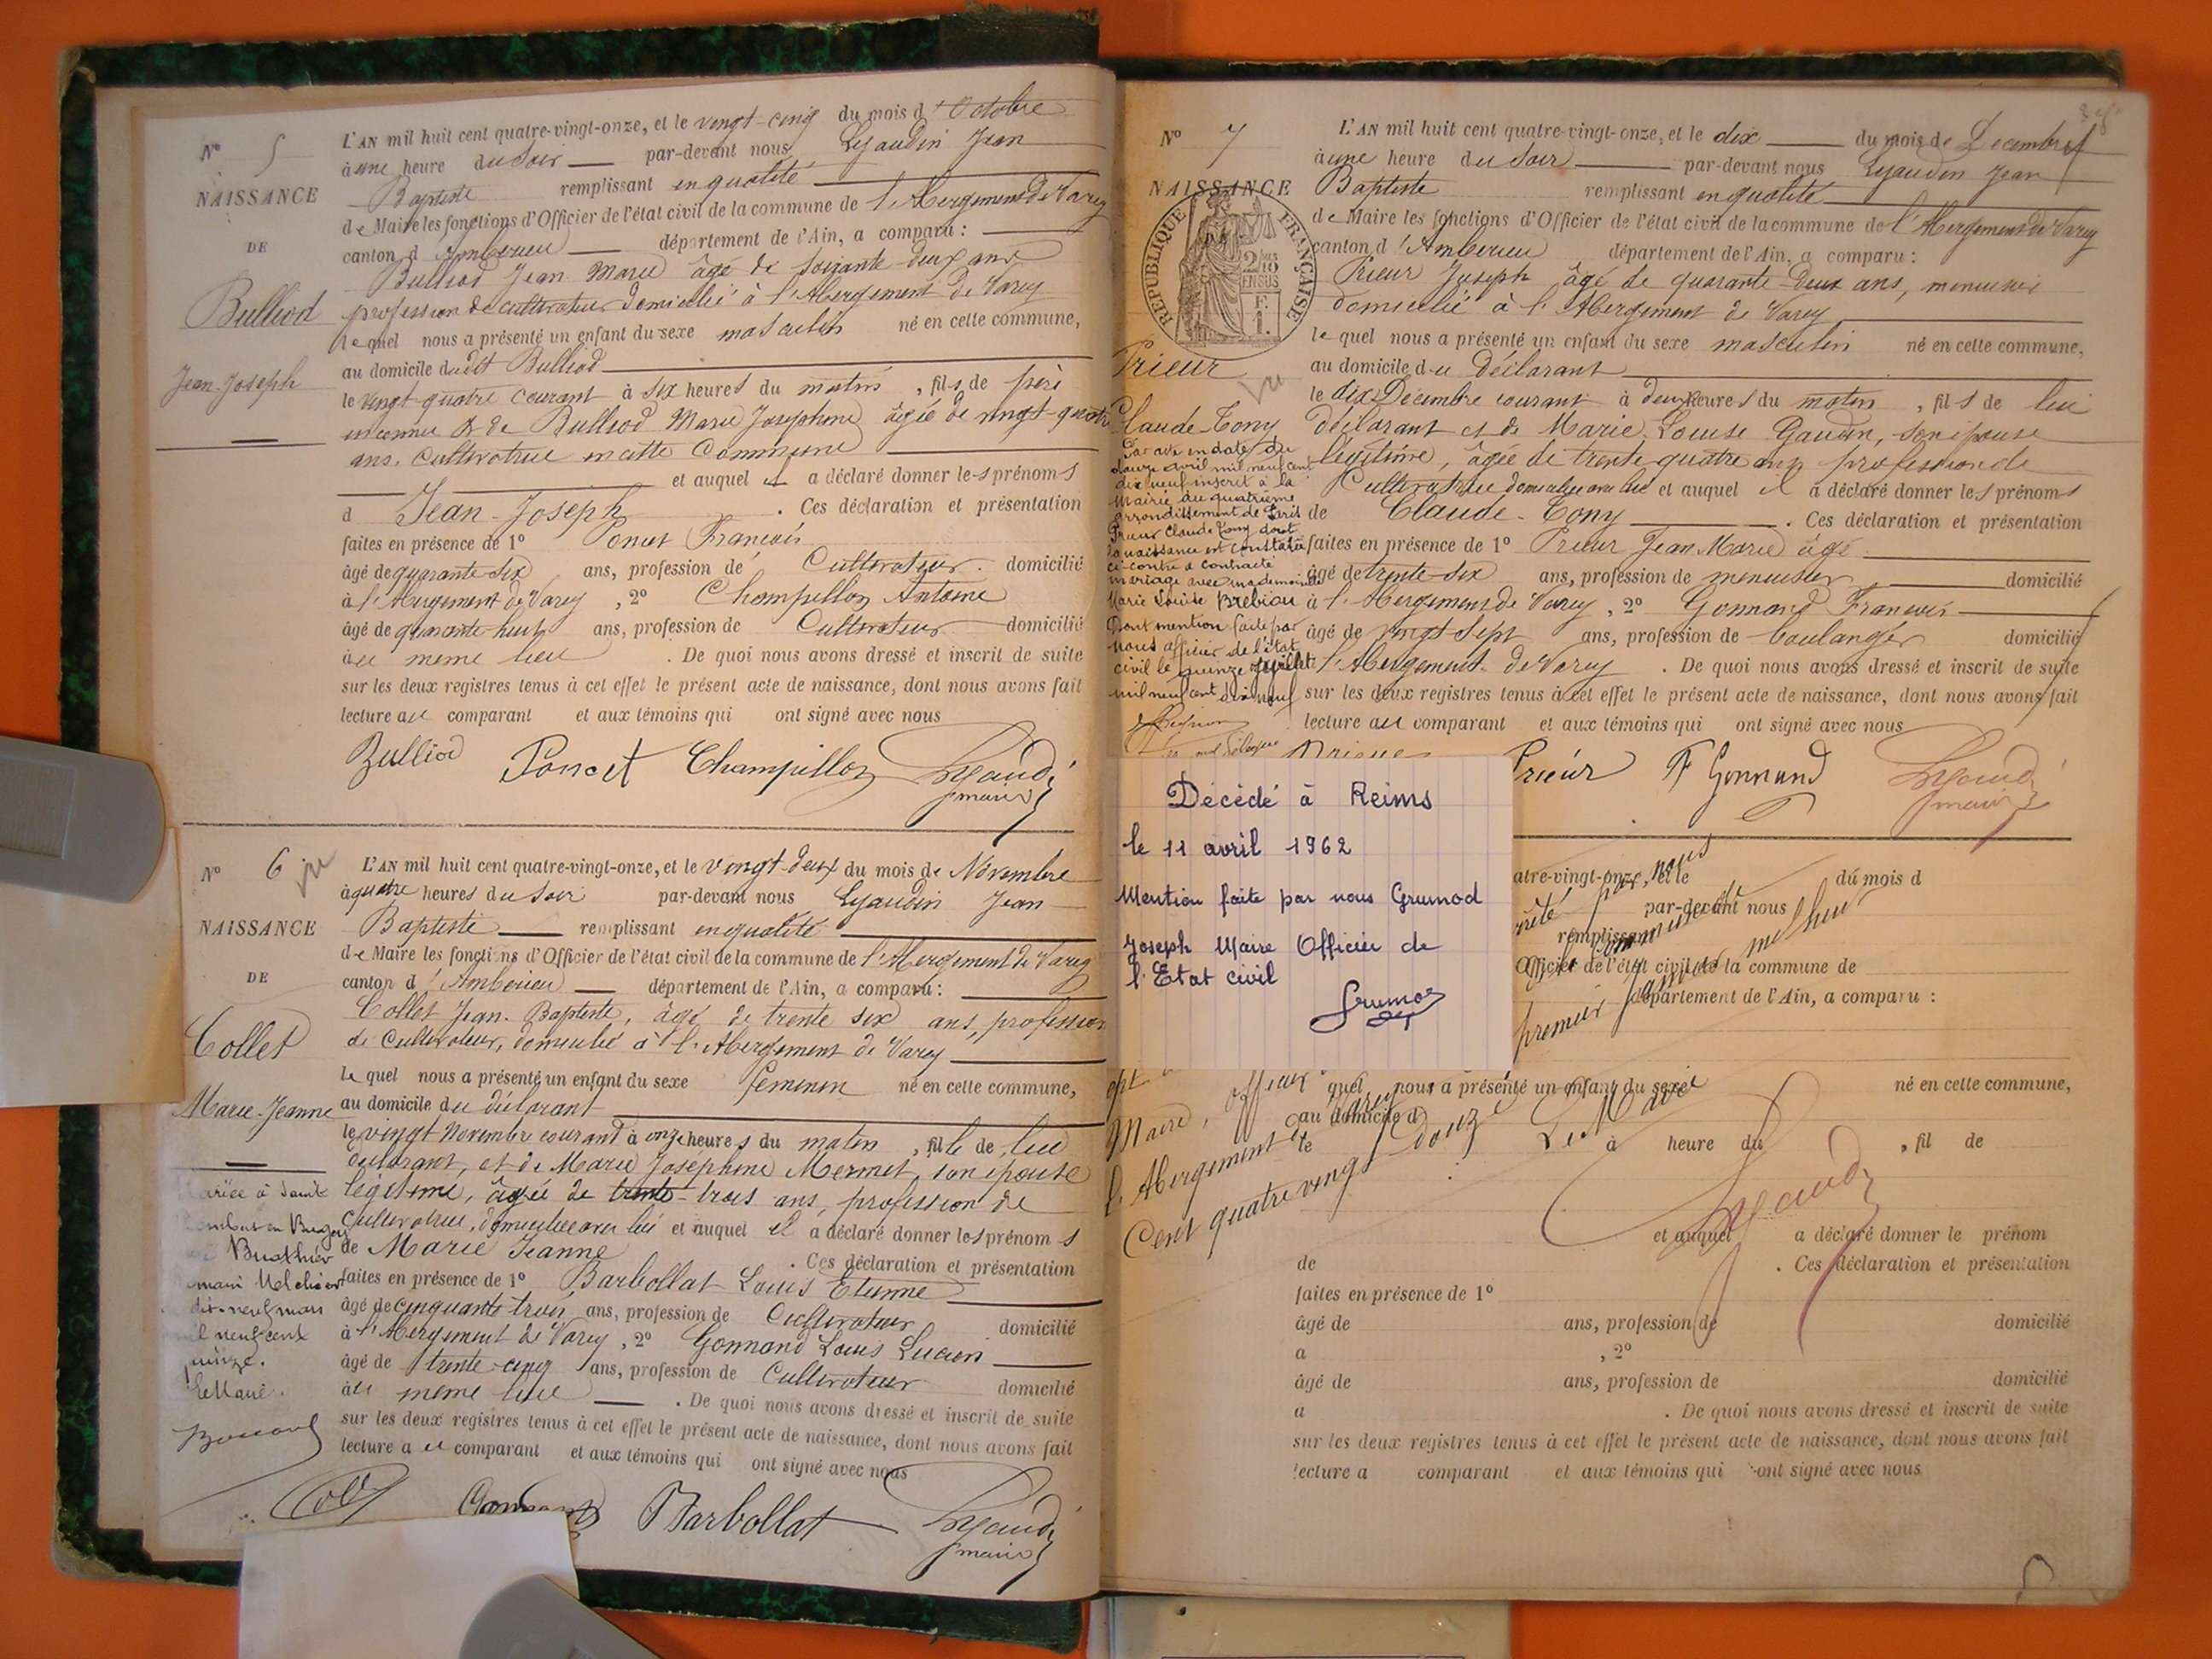 N° 5
NAISSANCE
DE
Bulliod
Jean-Joseph
L'AN mil huit cent quatre-vingt-onze, et le vingt-cinq du mois d'Octobre
à une heure du soir par-devant nous Lyaudin Jean
Baptiste remplissant en qualité
de Maire les fonctions d'Officier de l'état civil de la commune de l'Abergement de Varey
canton d'Amberieu département de l'Ain, a comparu :
Bulliod Jean Marie âgé de soixante deux ans
profession de cultivateur domicilié à l'Abergement de Varey
lequel nous a présenté un enfant du sexe masculin né en cette commune,
au domicile dudit Bulliod
le vingt-quatre courant à six heures du matin, fils de père
inconnu & de Bulliod Marie Joséphine âgée de vingt-quatre
ans, cultivatrice en cette commune
et auquel il a déclaré donner les prénoms
d Jean-Joseph. Ces déclaration et présentation
faites en présence de 1° Poncet Francois
âgé de quarante-six ans, profession de Cultivateur. domicilié
à l'Abergement de Varey, 2° Champillon Antoine
âgé de quarante-huit ans, profession de Cultivateur domicilié
au meme lieu. De quoi nous avons dressé et inscrit de suite
sur les deux registres tenus à cet effet le présent acte de naissance, dont nous avons fait
lecture au comparant et aux témoins qui ont signé avec nous
Bulliod Poncet Champillon Lyaudin
maire
N° 6 vu
NAISSANCE
DE
Collet
Marie-Jeanne
L'AN mil huit cent quatre-vingt-onze, et le vingt-deux du mois de Novembre
à quatre heures du soir par-devant nous Lyaudin Jean
Baptiste remplissant en qualité
de Maire les fonctions d'Officier de l'état civil de la commune de l'Abergement de Varey
canton d'Amberieu département de l'Ain, a comparu :
Collet Jean-Baptiste, âgé de trente six ans, profession
de Cultivateur, domicilié à l'Abergement de Varey
lequel nous a présenté un enfant du sexe feminin né en cette commune,
au domicile du déclarant
le vingt Novembre courant à onze heures du matin, fille de lui
déclarant, et de Marie Joséphine Mermet, son épouse
légitime, âgée de trente-trois ans, profession de
cultivatrice, domiciliée avec lui et auquel il a déclaré donner les prénoms
de Marie Jeanne. Ces déclaration et présentation
faites en présence de 1° Barbollat Louis Etienne
âgé de cinquante trois ans, profession de Cultivateur domicilié
à l'Abergement de Varey, 2° Gonnand Louis Lucien
âgé de trente-cinq ans, profession de Cultivateur domicilié
au meme lieu. De quoi nous avons dressé et inscrit de suite
sur les deux registres tenus à cet effet le présent acte de naissance, dont nous avons fait
lecture au comparant et aux témoins qui ont signé avec nous
Mariée à Saint
Rambert en Bugey
Buathier
dix-neuf mars
mil neuf cent
quinze.
Le Maire.
Gonnand Barbollat Lyaudin
maire
N° 7
NAISSANCE
DE
RÉPUBLIQUE FRANÇAISE
2/10 EN SUS
F. 1.
Prieur vu
Claude-Tony
L'AN mil huit cent quatre-vingt-onze, et le dix du mois de Decembre
à une heure du soir par-devant nous Lyaudin Jean
Baptiste remplissant en qualité
de Maire les fonctions d'Officier de l'état civil de la commune de l'Abergement de Varey
canton d'Amberieu département de l'Ain, a comparu :
Prieur Joseph âgé de quarante-deux ans, menuisier
domicilié à l'Abergement de Varey
lequel nous a présenté un enfant du sexe masculin né en cette commune,
au domicile du déclarant
le dix Décembre courant à deux heures du matin, fils de lui
déclarant et de Marie-Louise Gaudin, son épouse
légitime, âgée de trente-quatre ans profession de
Cultivatrice domiciliée avec lui et auquel il a déclaré donner les prénoms
de Claude-Tony. Ces déclaration et présentation
faites en présence de 1° Prieur Jean Marie âgé
âgé de trente-six ans, profession de menuisier domicilié
à l'Abergement de Varey, 2° Gonnand Francois
âgé de vingt-sept ans, profession de boulanger domicilié
à l'Abergement de Varey. De quoi nous avons dressé et inscrit de suite
sur les deux registres tenus à cet effet le présent acte de naissance, dont nous avons fait
lecture au comparant et aux témoins qui ont signé avec nous
Par acte en date du
douze avril mil neuf cent
dix neuf inscrit à la
Mairie du quatrième
arrondissement de Paris
Prieur Claude Tony dont
la naissance est constatée
ci-contre a contracté
mariage avec mademoiselle
Marie Louise Brebion
Dont mention faite par
nous officier de l'état
civil le quinze Juillet
mil neuf cent dix neuf
Prieur Prieur F Gonnand Lyaudin
maire
Décédé à Reims
le 11 avril 1962
Mention faite par nous Grumod
Joseph Maire Officier de
l'Etat civil
Grumod
atre-vingt-onze, et le du mois d
par-devant nous
remplissant
Officier de l'état civil de la commune de
département de l'Ain, a comparu :
par nous
premier Janvier mil huit
quel nous a présenté un enfant du sexe né en cette commune,
au domicile d
le à heure du , fil de
Maire, officier
l'Abergement de Varey
Cent quatre vingt douze
Le Maire
Lyaudin
et auquel a déclaré donner le prénom
de . Ces déclaration et présentation
faites en présence de 1°
âgé de ans, profession de domicilié
a , 2°
âgé de ans, profession de domicilié
a . De quoi nous avons dressé et inscrit de suite
sur les deux registres tenus à cet effet le présent acte de naissance, dont nous avons fait
lecture a comparant et aux témoins qui ont signé avec nous